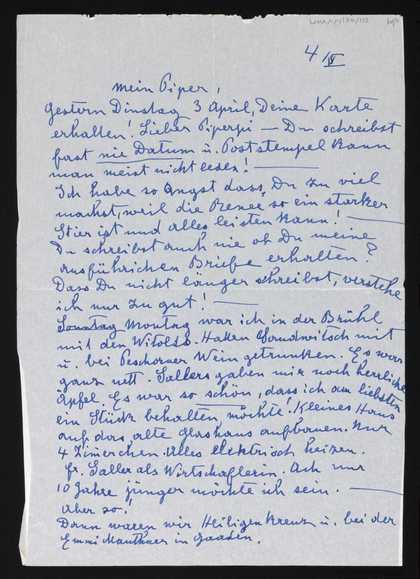 4/IV
Mein Piper,
Gestern Dinstag 3 April, Deine Karte
erhalten! Lieber Piperpi — Du schreibst
fast nie Datum u. Poststempel kann
man meist nicht lesen! —
Ich habe so Angst dass, Du zu viel
machst, weil die Renee so ein starker
Stier ist und alles leisten kann! —
Du schreibst auch nie ob Du meine
ausführlichen Briefe erhalten?
Dass Du nicht länger schreibst, verstehe
ich nur zu gut! —
Sonntag Montag war ich in der Brühl
mit den Witolds. Haben Sandwitsch mit
u. bei Peschorner Wein getrunken. Es war
ganz nett. Sallers gaben mir noch herrliche
Äpfel. Es war so schön, dass ich am liebsten
ein Stück behalten möchte! Kleines Haus
auf das, alte Glashaus aufbauen. Nur
4 Zimerchen. Alles elektrisch heizen.
Fr. Saller als Wirtschafterin. Ach nur
10 Jahre jünger möchte ich sein. —
Aber so!
Dann waren wir Heiligen Kreuz u. bei der
Emmi Mauthner in Gaaden.